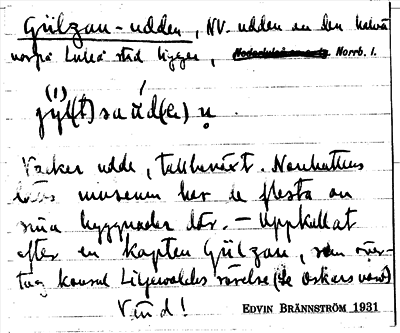 Gülzau-udden, NV. udden av den halvö
varpå Luleå stad ligger, Norrb. l.
Vacker udde, tallbeväxt. Norrbottens
läns museum har de flesta av
sina byggnader där. – Uppkallat
efter en kapten Gülzau, som över-
tog konsul Liljewalchs rörelse (se Oskarsvarv)
Vänd!
EDVIN BRÄNNSTRÖM 1931